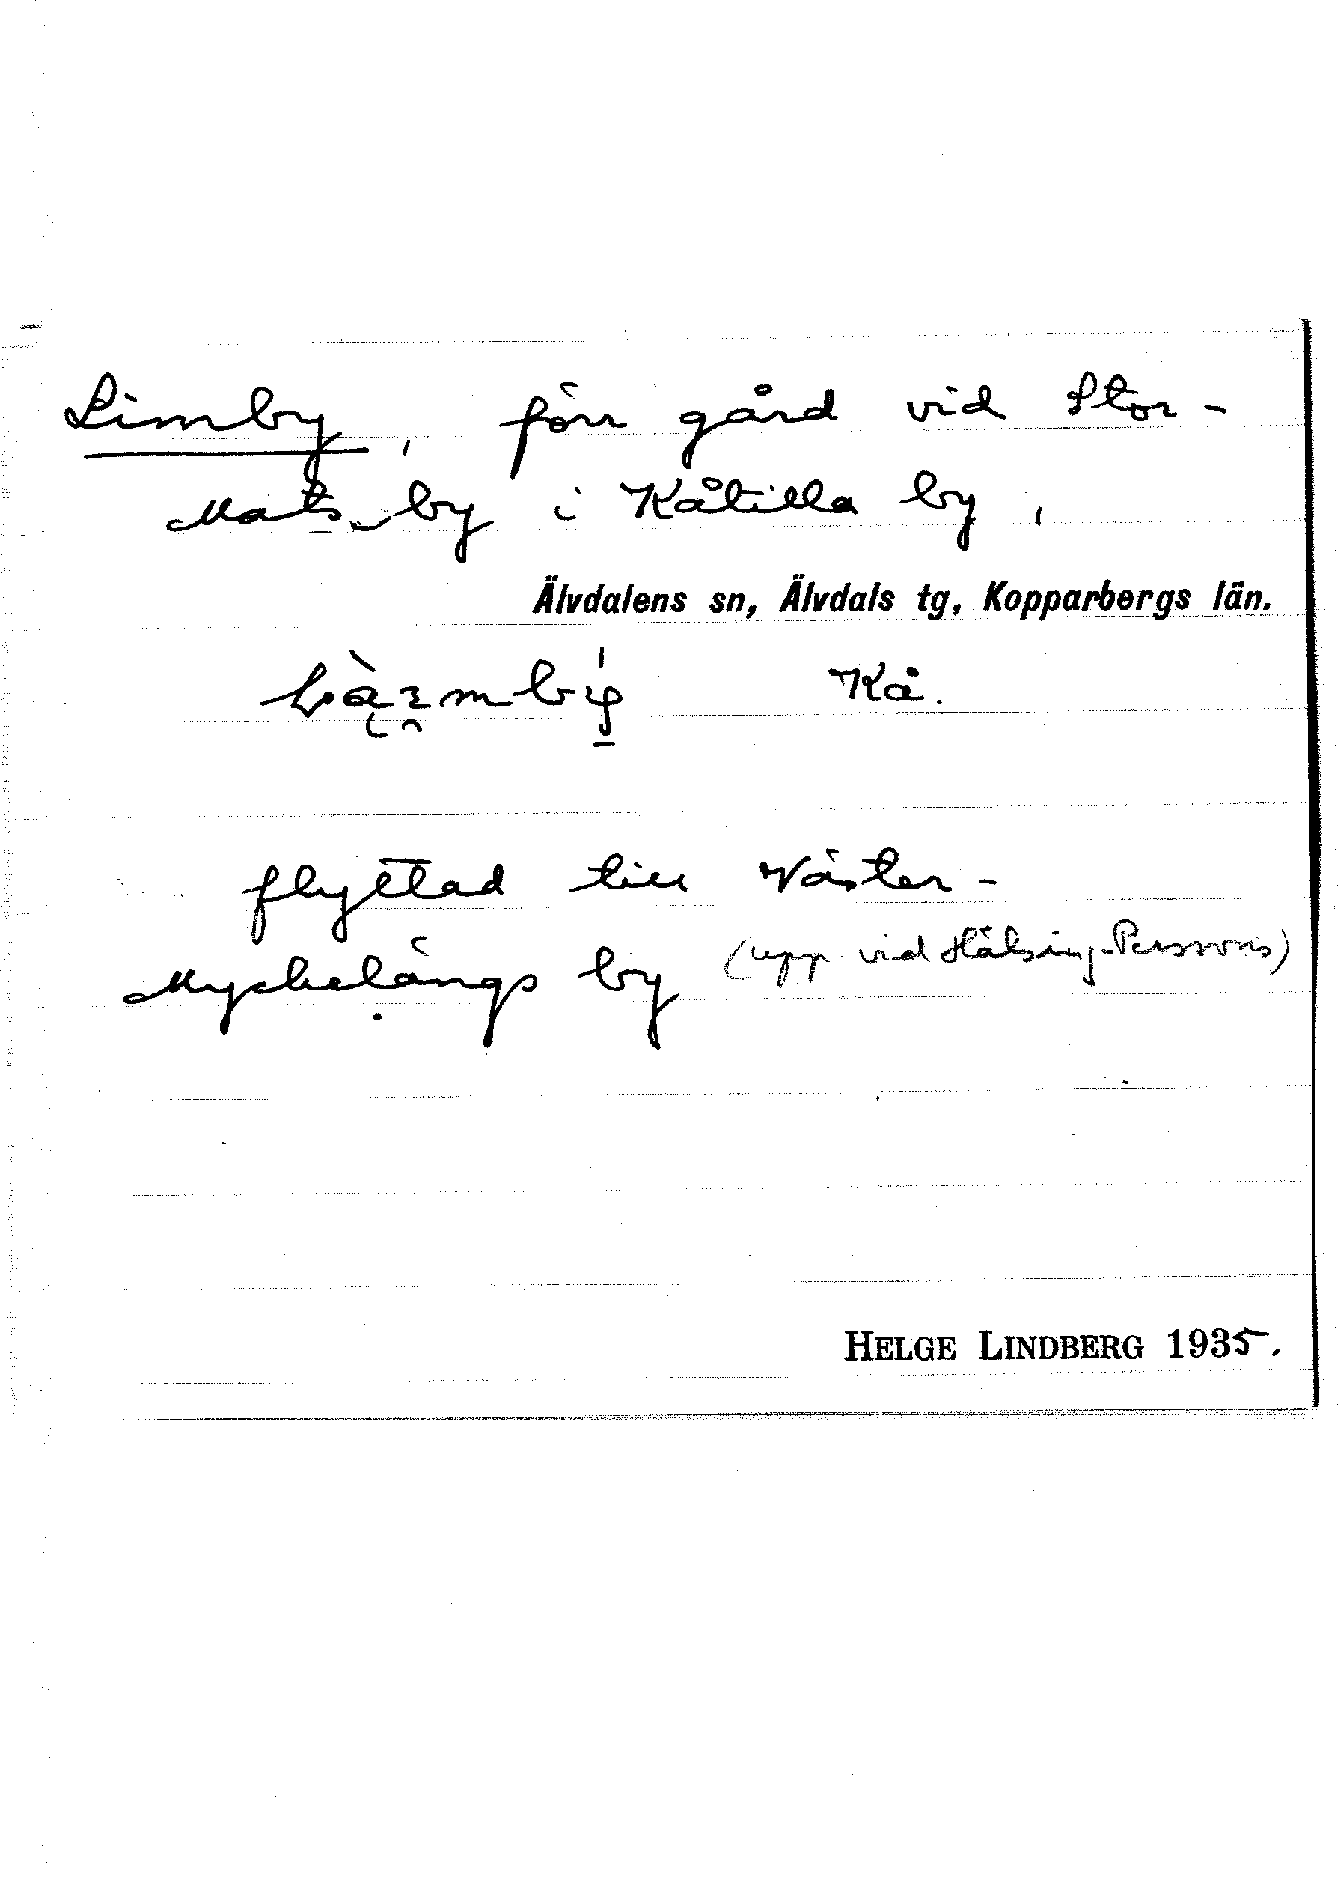 Limby, förr gård vid Stor-
Mats by i Kåtilla by,
Älvdalens sn, Älvdals tg, Kopparbergs län.
Kå.
flyttad till Väster-
Myckelängs by (upp vid Hälsing-Perssons)
HELGE LINDBERG 1935.